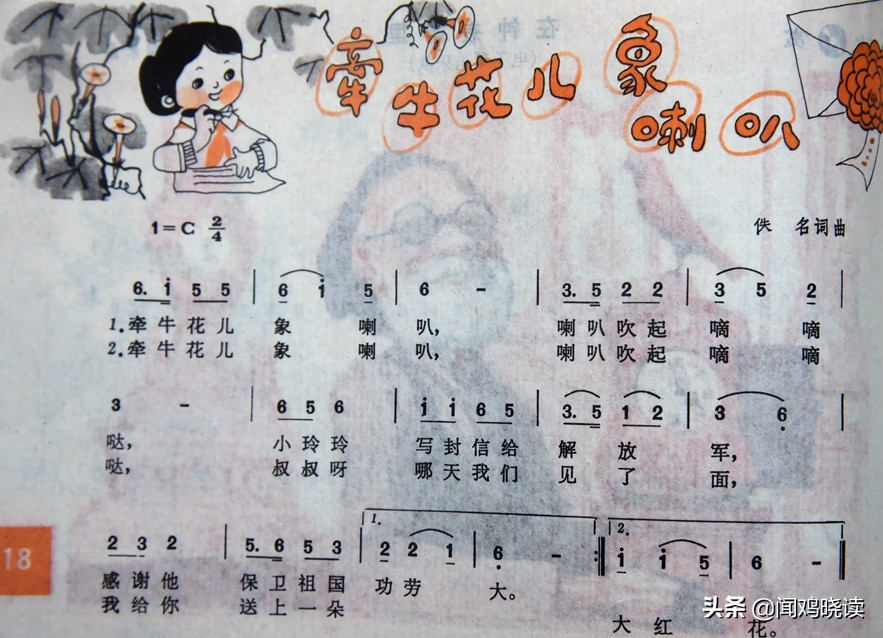 牵牛花儿象喇叭
1=C 2/4
佚 名词曲
6. i 5 5 | 6 i 5 | 6 - | 3. 5 2 2 | 3 5 2 |
1.牵牛花儿 象 喇 叭, 喇叭吹起 嘀 嘀
2.牵牛花儿 象 喇 叭, 喇叭吹起 嘀 嘀
3 - | 6 5 6 | i i 6 5 | 3. 5 1 2 | 3 6 |
哒, 小玲玲 写封信给 解 放 军,
哒, 叔叔呀 哪天我们 见 了 面,
1. 2.
2 3 2 | 5. 6 5 3 | 2 2 1 | 6 - :‖ i i 5 | 6 - ‖
感谢他 保卫祖国 功劳 大。
我给你 送上一朵 大红 花。
18
头条 @闻鸡晓读